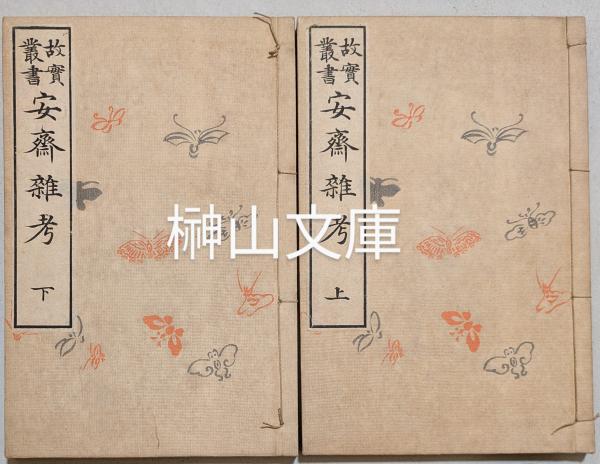 故實
叢書
安齋雜考
上
故實
叢書
安齋雜考
下
榊山文庫